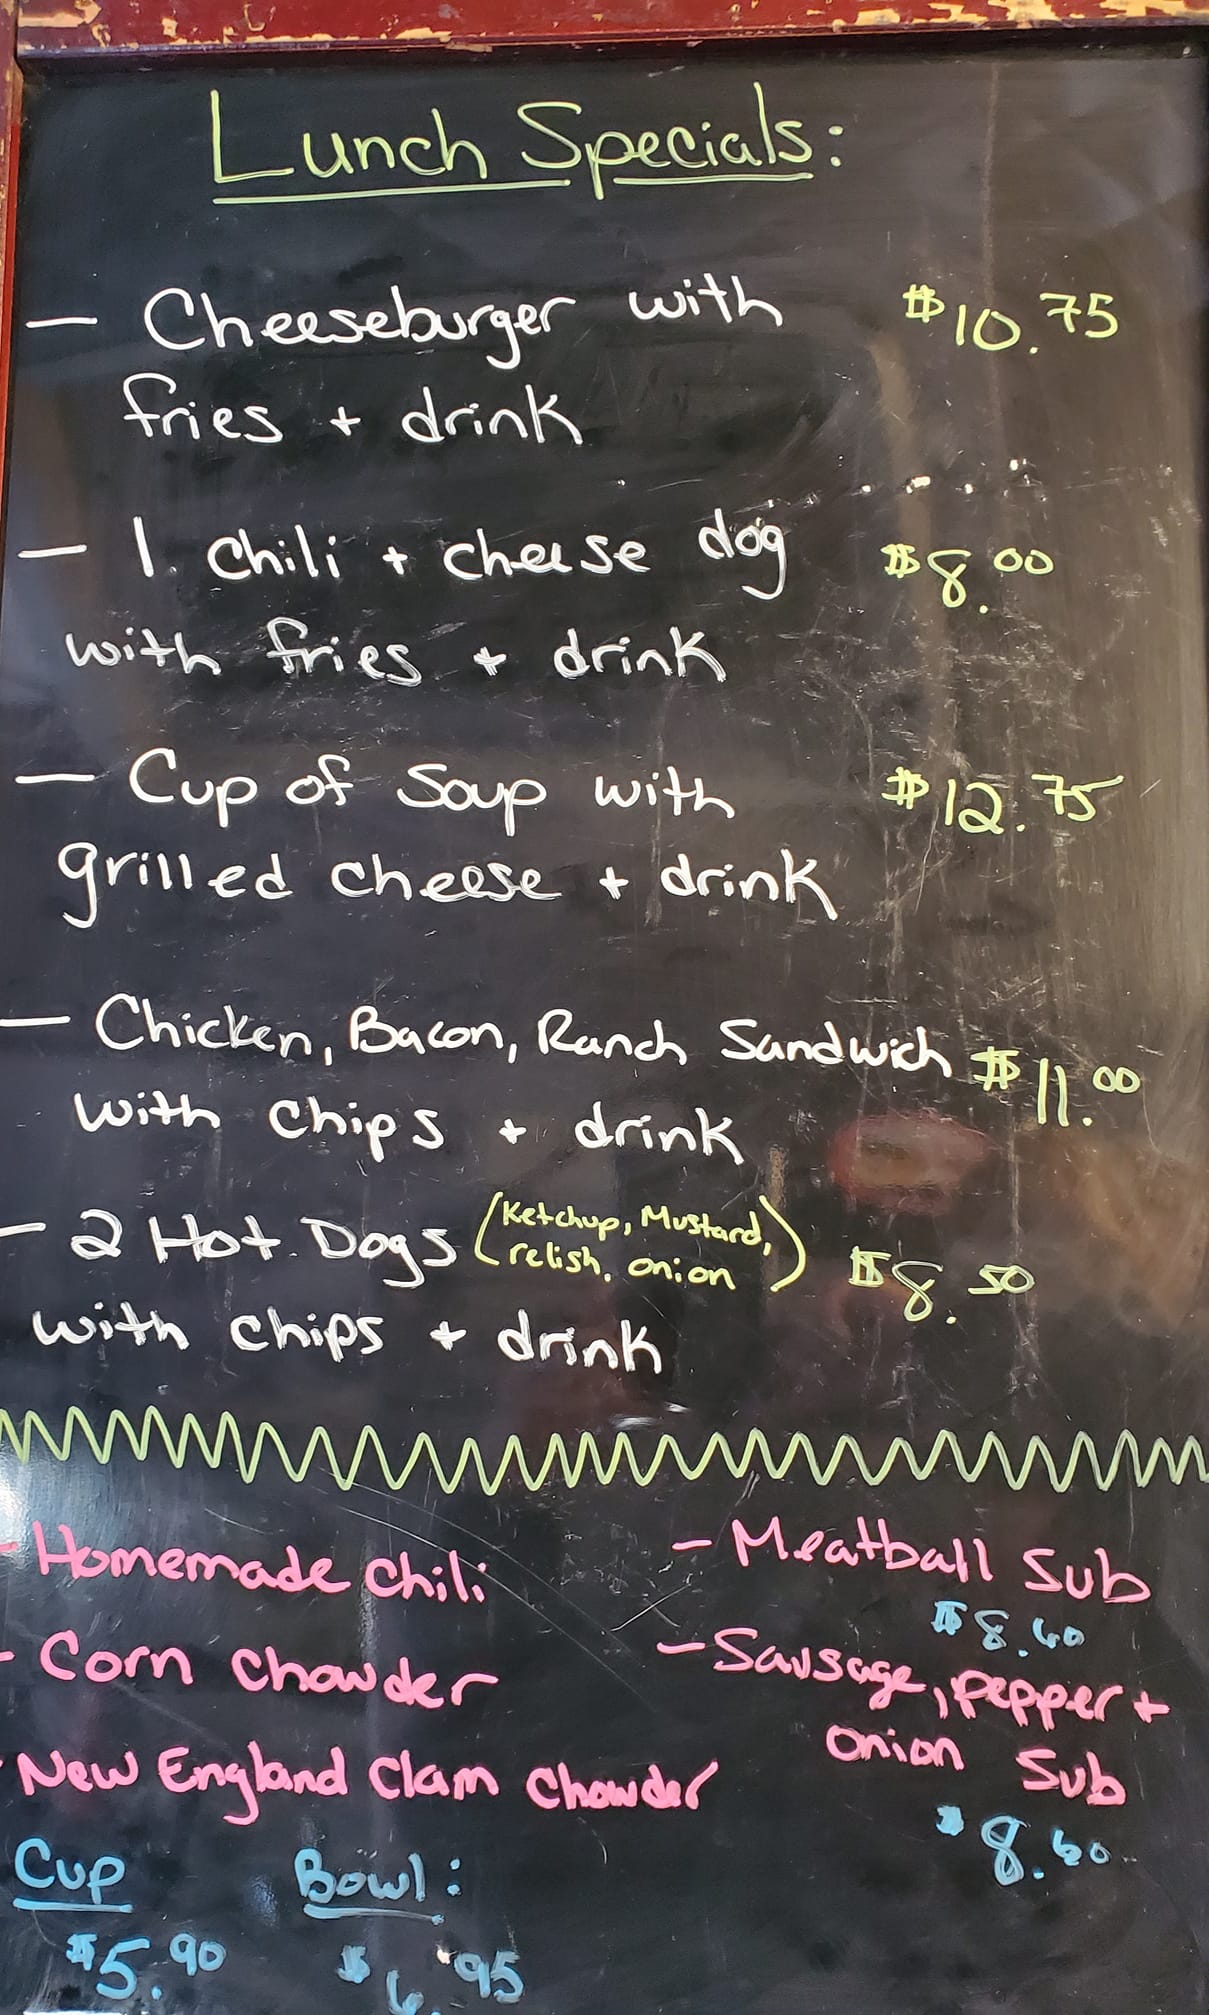 Lunch Specials:
- Cheeseburger with $10.75
fries + drink
- 1. Chili + cheese dog $8.00
with fries + drink
- Cup of Soup with $12.75
grilled cheese + drink
- Chicken, Bacon, Ranch Sandwich $11.00
with chips + drink
- 2 Hot Dogs (Ketchup, Mustard, $8.50
relish, onion)
with chips + drink
- Homemade Chili
- Corn Chowder
- New England Clam Chowder
Cup Bowl:
$5.90 $6.95
- Meatball Sub
$8.60
- Sausage, pepper +
onion Sub
$8.60